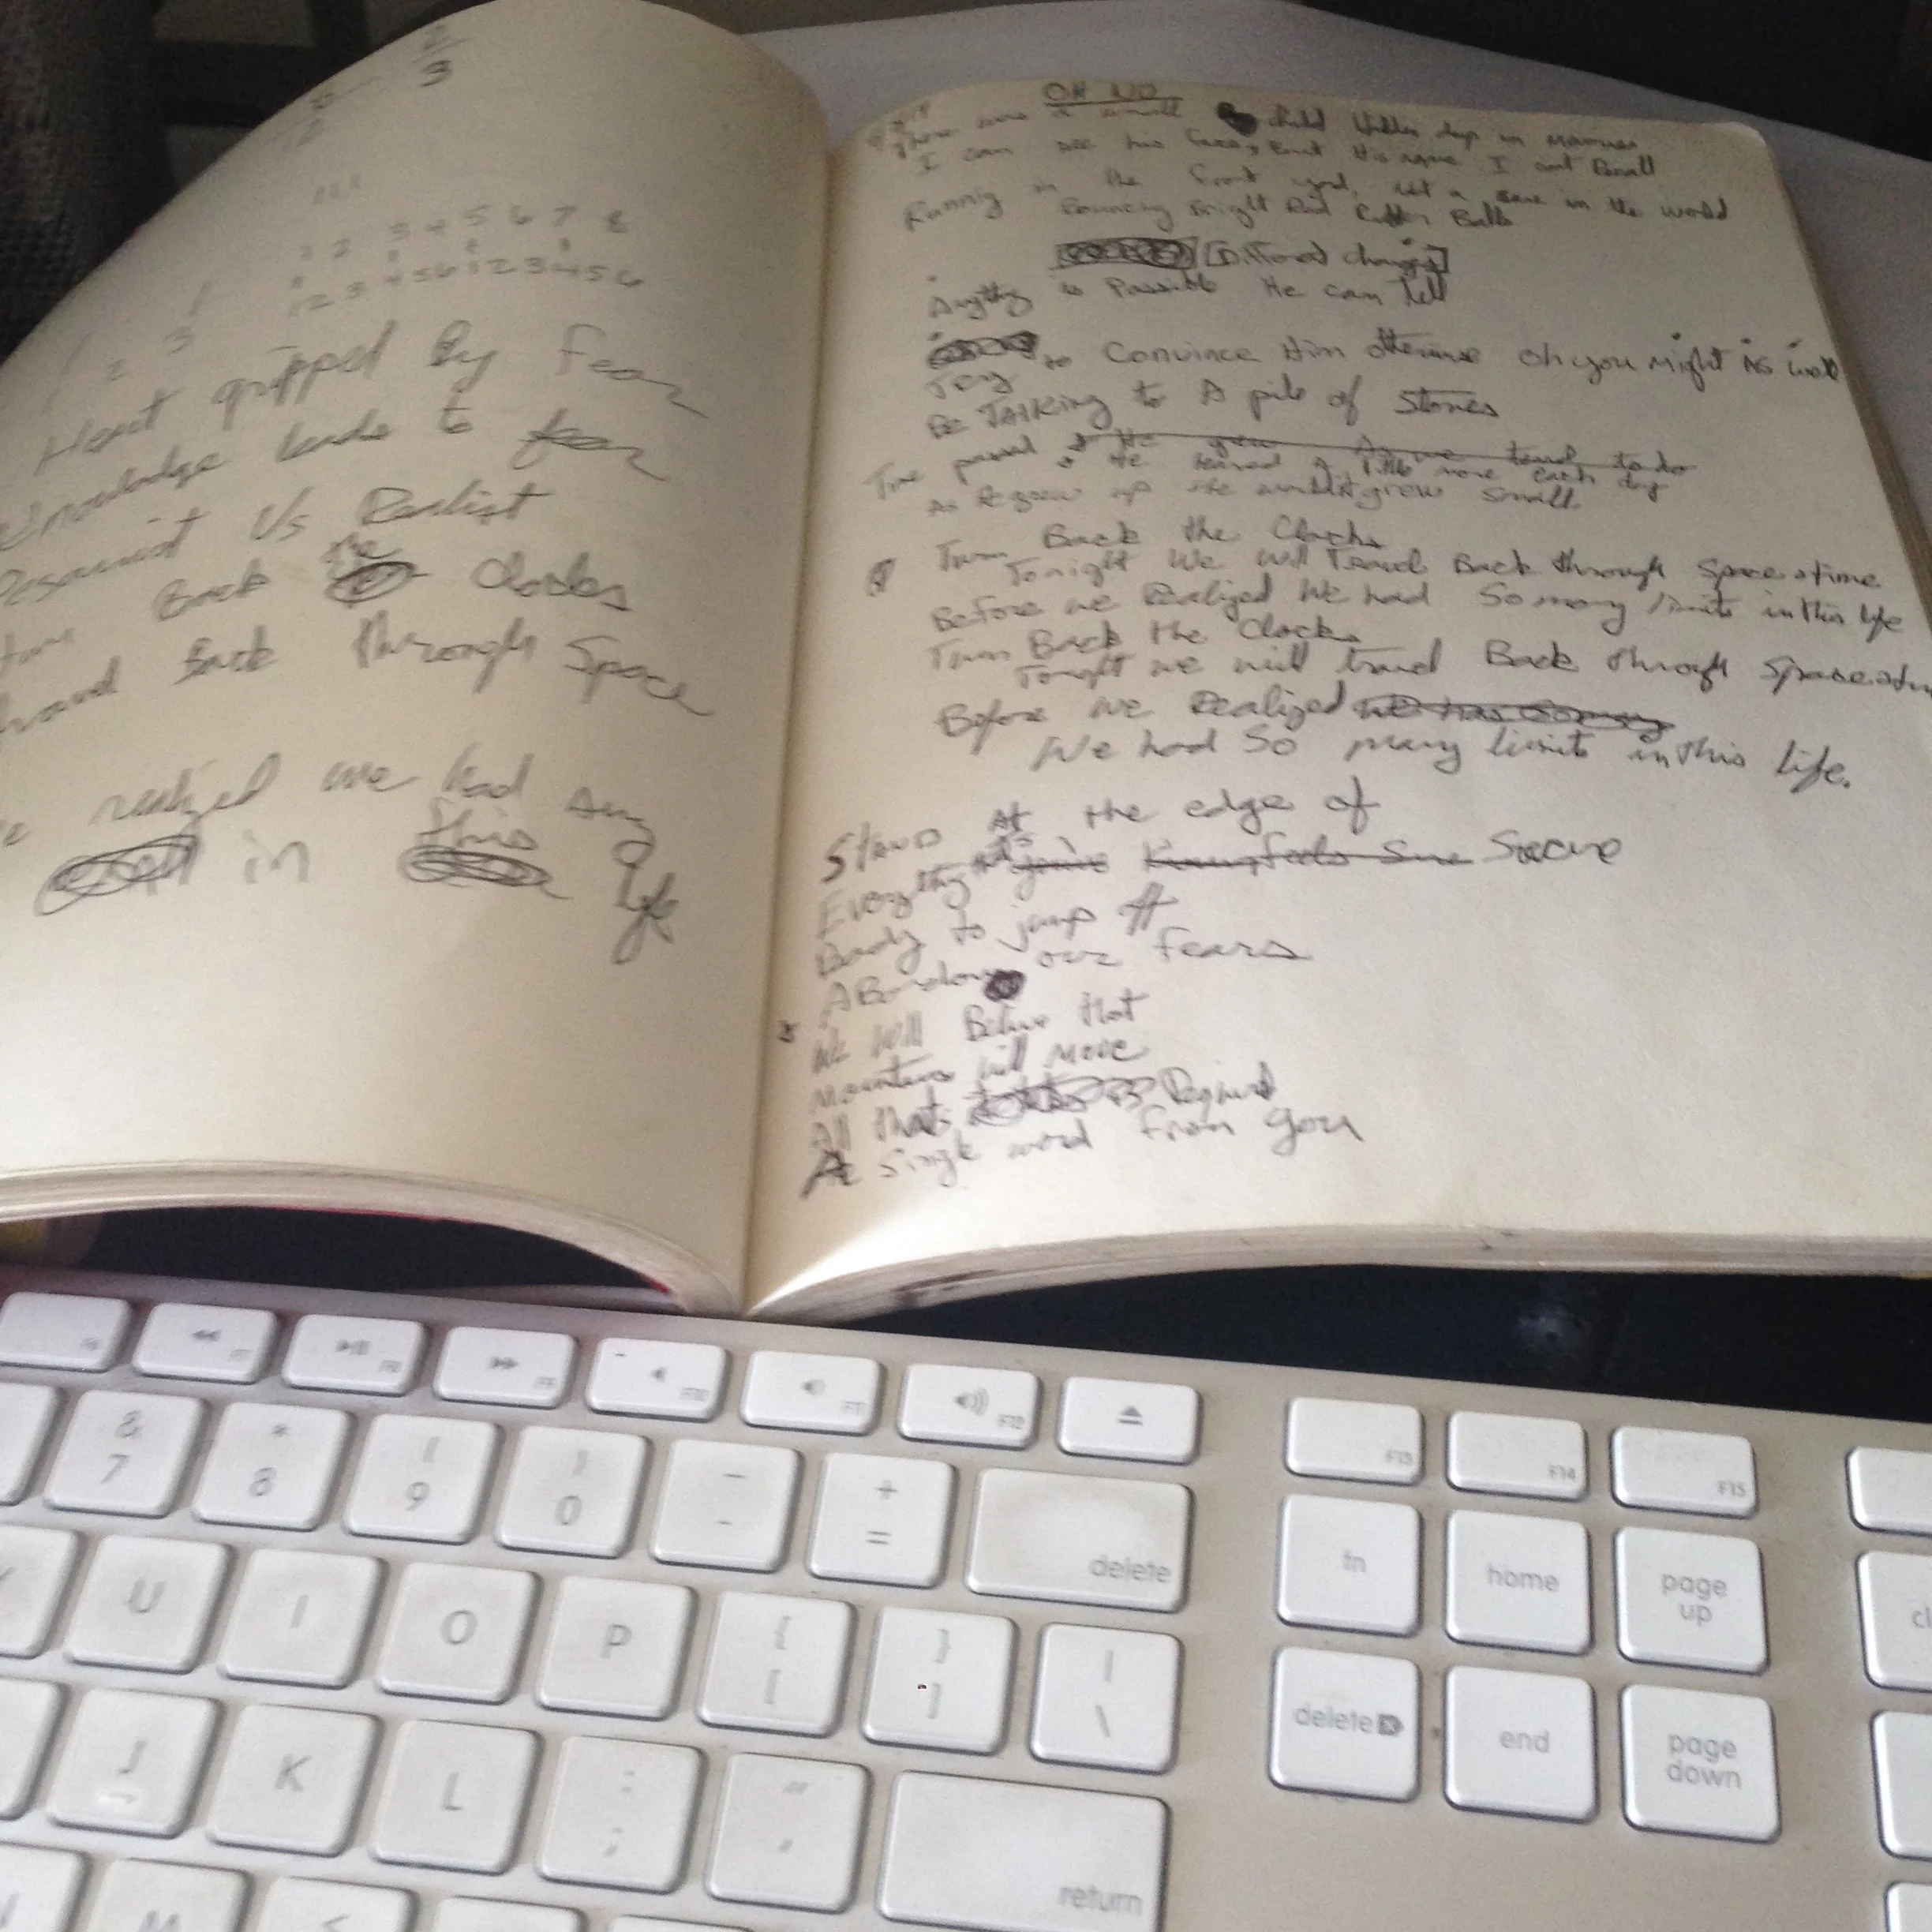 2
3
1 2 3 4 5 6 7 8
1 2 3 4 5 6 1 2 3 4 5 6
1 2 3
Heart gripped By fear
Knowledge leads to fear
Vs Realist
turn Back the Clocks
Back through Space
realized we had any
in this life
OH NO
There was a small child hidden deep in
I can see his face, But his name I cant Recall
Running in the front yard, not a care in the world
Bouncing Bright Red Rubber Balls
[Different changes]
Anything is Possible He can tell
Try to Convince Him otherwise oh you Might As well
Be TAlking to A pile of Stones
Time passed & He grew As we tend to do
& He learned a little more each day
As He grew up the world it grew Small.
Turn Back the Clocks
Tonight We will Travel Back through Space & time
Before we Realized We had So many limits in this life
Turn Back the Clocks
Tonight we will travel Back through Space & time
Before we Realized we had so many
We had So many limits in this life.
Stand At the edge of
Everything that's Secure
Ready to jump off
ABandon our fears
We Will Believe that
Mountains will move
All that's Required
A Single word from you
F7
F8
F9
F10
F11
F12
F13
F14
F15
& 7
* 8
( 9
) 0
_ -
+ =
delete
fn
home
page up
U
I
O
P
{ [
} ]
| \
delete
end
page down
J
K
L
: ;
" '
return
M
<